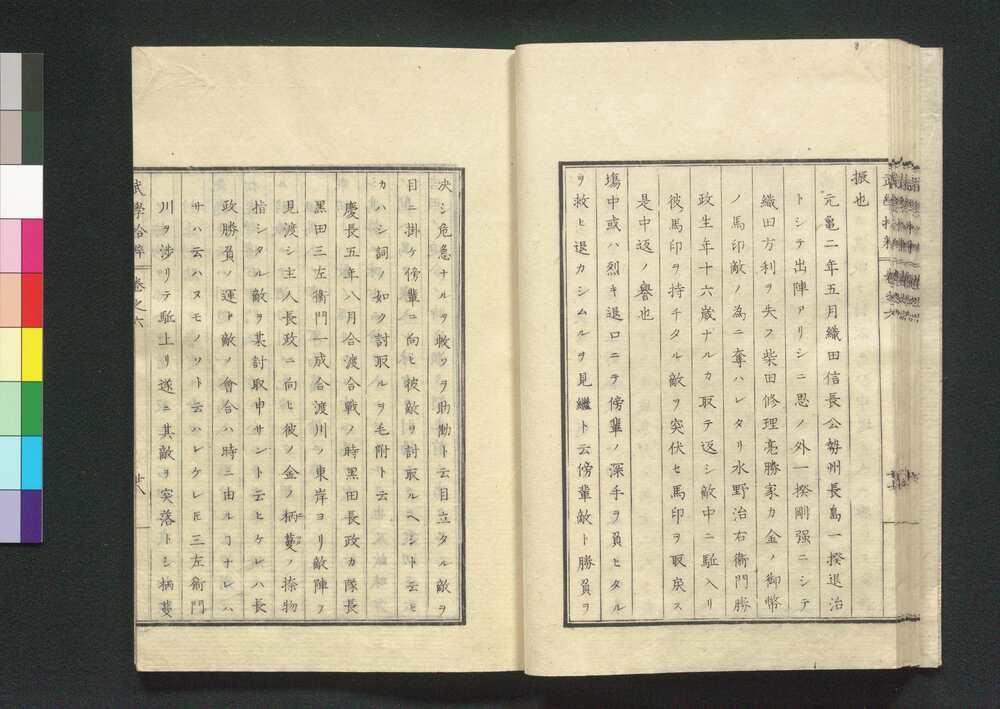 振也
元亀二年五月織田信長公勢州長島一揆退治
トシテ出陣アリシニ思ノ外一揆剛强ニシテ
織田方利ヲ失フ柴田修理亮勝家カ金ノ御幣
ノ馬印敵ノ為ニ奪ハレタリ水野治右衛門勝
政生年十六歳ナルカ取テ返シ敵中ニ駈入リ
彼馬印ヲ持チタル敵ヲ突伏セ馬印ヲ取戻ス
是中返ノ譽也
塲中或ハ烈キ退口ニテ傍輩ノ深手ヲ負ヒタル
ヲ救ヒ退カシムルヲ見繼ト云傍輩敵ト勝負ヲ
决シ危急ナルヲ救フヲ助勧ト云目立タル敵ヲ
目ニ掛ケ傍輩ニ向ヒ彼敵ヲ討取ルヘシト云ヒ
カハシ詞ノ如ク討取ルヲ毛附ト云
慶長五年八月合渡合戰ノ時黒田長政カ隊長
黒田三左衛門一成合渡川ノ東岸ヨリ敵陣ヲ
見渡シ主人長政ニ向ヒ彼ノ金ノ柄蔓ノ捺物
指シタル敵ヲ某討取申サント云ヒケレハ長
政勝負ノ運ト敵ノ會合ハ時ニ由ルヿナレハ
サハ云ハヌモノソト云ハレケレ𪜈三左衛門
川ヲ涉リテ駈上リ遂ニ其敵ヲ突落トシ柄蔓
武學拾粹 卷之六 廿八